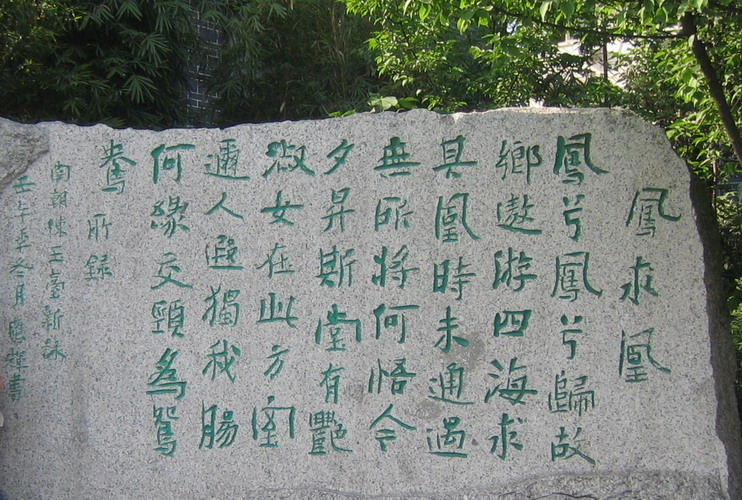 鳳求凰
鳳兮鳳兮歸故
鄉遨游四海求
其凰時未通遇
無所將何悟今
夕昇斯堂有豔
淑女在此方室
邇人遐獨我腸
何緣交頸為鴛
鴦 所錄
南朝陳玉臺新詠
壬午年冬月書